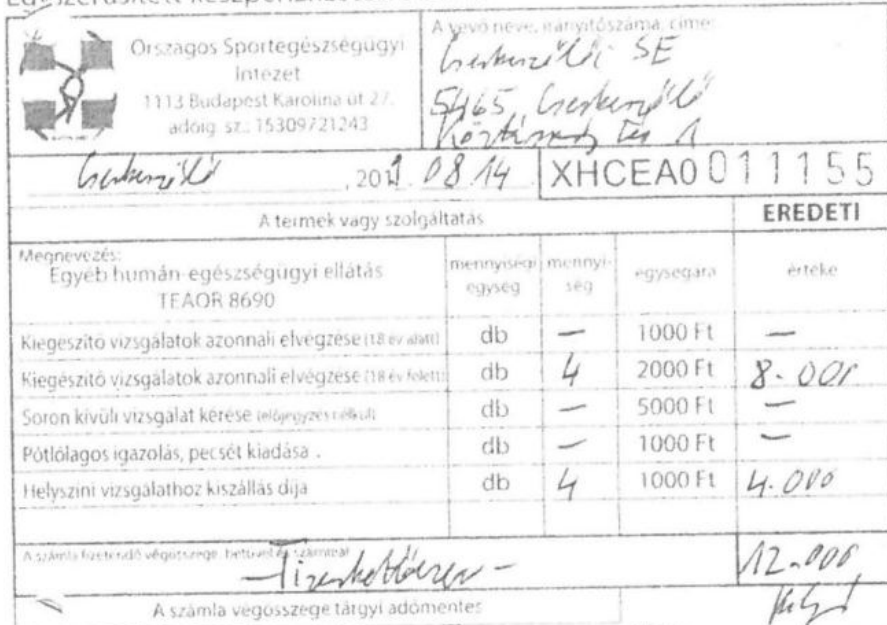 Országos Sportegészségügyi
Intézet
1113 Budapest Karolina út 27.
adóig. sz.: 15309721243
A vevő neve, irányítószáma, címe:
Cserkeszőlői SE
5465 Cserkeszőlő
Köztársaság tér 1
Cserkeszőlő, 2011 08 14
XHCEA0011155
A termék vagy szolgáltatás
EREDETI
Megnevezés:
Egyéb humán-egészségügyi ellátás
TEÁOR 8690
mennyiségi egység
mennyi-ség
egységára
értéke
Kiegészítő vizsgálatok azonnali elvégzése (18 év alatt) db — 1000 Ft —
Kiegészítő vizsgálatok azonnali elvégzése (18 év felett) db 4 2000 Ft 8.000
Soron kívüli vizsgálat kérése (előjegyzés nélkül) db — 5000 Ft —
Pótlólagos igazolás, pecsét kiadása . db — 1000 Ft —
Helyszíni vizsgálathoz kiszállás díja db 4 1000 Ft 4.000
A számla fizetendő végösszege, betűvel és számmal
— Tizenkettőezer — 12.000
A számla végösszege tárgyi adómentes